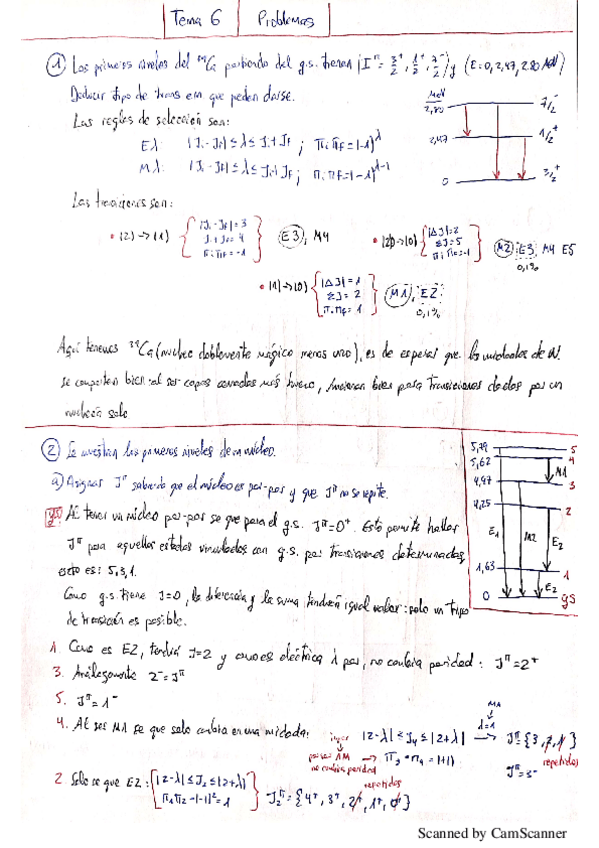 Tema 6 Problemas
① Los primeros niveles del ³⁹Ca partiendo del g.s. tienen (I^π = 3/2⁺, 1/2⁺, 7/2⁻) y (E = 0, 2,47, 2.80 MeV)
Deducir tipo de trans em que pueden darse.
Las reglas de selección son:
Eλ: |Ji - Jf| ≤ λ ≤ Ji + Jf ; πi πf = (-1)^λ
Mλ: |Ji - Jf| ≤ λ ≤ Ji + Jf ; πi πf = (-1)^λ-1
MeV
2,80 7/2⁻
2,47 1/2⁺
0 3/2⁺
Las transiciones son:
• (2) → (1) { |Ji - Jf| = 3
Ji + Jf = 4
πi πf = -1 } E3, M4
• (2) → (0) { |ΔJ| = 2
ΣJ = 5
πi πf = -1 } M2, E3 M4 E5
0,1%
• (1) → (0) { |ΔJ| = 1
ΣJ = 2
πi πf = 1 } M1, E2
0,1%
Aquí tenemos ³⁹Ca (núcleo doblemente mágico menos uno), es de esperar que las unidades de W.
se comporten bien: al ser capas cerradas más hueco, funcionan bien para transiciones dadas por un
nucleón solo
② Se muestran los primeros niveles de un núcleo.
a) Asignar J^π sabiendo que el núcleo es par-par y que J^π no se repite.
gs Al tener un núcleo par-par se que para el g.s. J^π = 0⁺. Esto permite hallar
J^π para aquellos estados vinculados con g.s. por transiciones determinadas,
esto es: 5, 3, 1.
Como g.s. tiene J = 0, la diferencia y la suma tendrán igual valor: solo un tipo
de transición es posible.
5,79 5
5,62 4
4,97 3
4,25 2
1,63 1
0 gs
M1
E1
M2
E2
E2
1. Como es E2, tendrá J = 2 y como es eléctrica λ par, no cambia paridad: J^π = 2⁺
3. Análogamente 2⁻ = J^π
5. J^π = 1⁻
4. Al ser M1 se que solo cambia en una unidad: |2-λ| ≤ J₄ ≤ |2+λ| → J^π = {3, 2, 1}
M1
λ=1
impar
no cambia paridad → π₃ · π₄ = (+1)
repetidos
J^π = 3⁻
2. Solo se que E2: { |2-λ| ≤ J₂ ≤ |2+λ|
π₁π₂ = (-1)² = 1 } J₂^π = {4⁺, 3⁺, 2⁺, 1⁺, 0⁺}
repetidos
Scanned by CamScanner